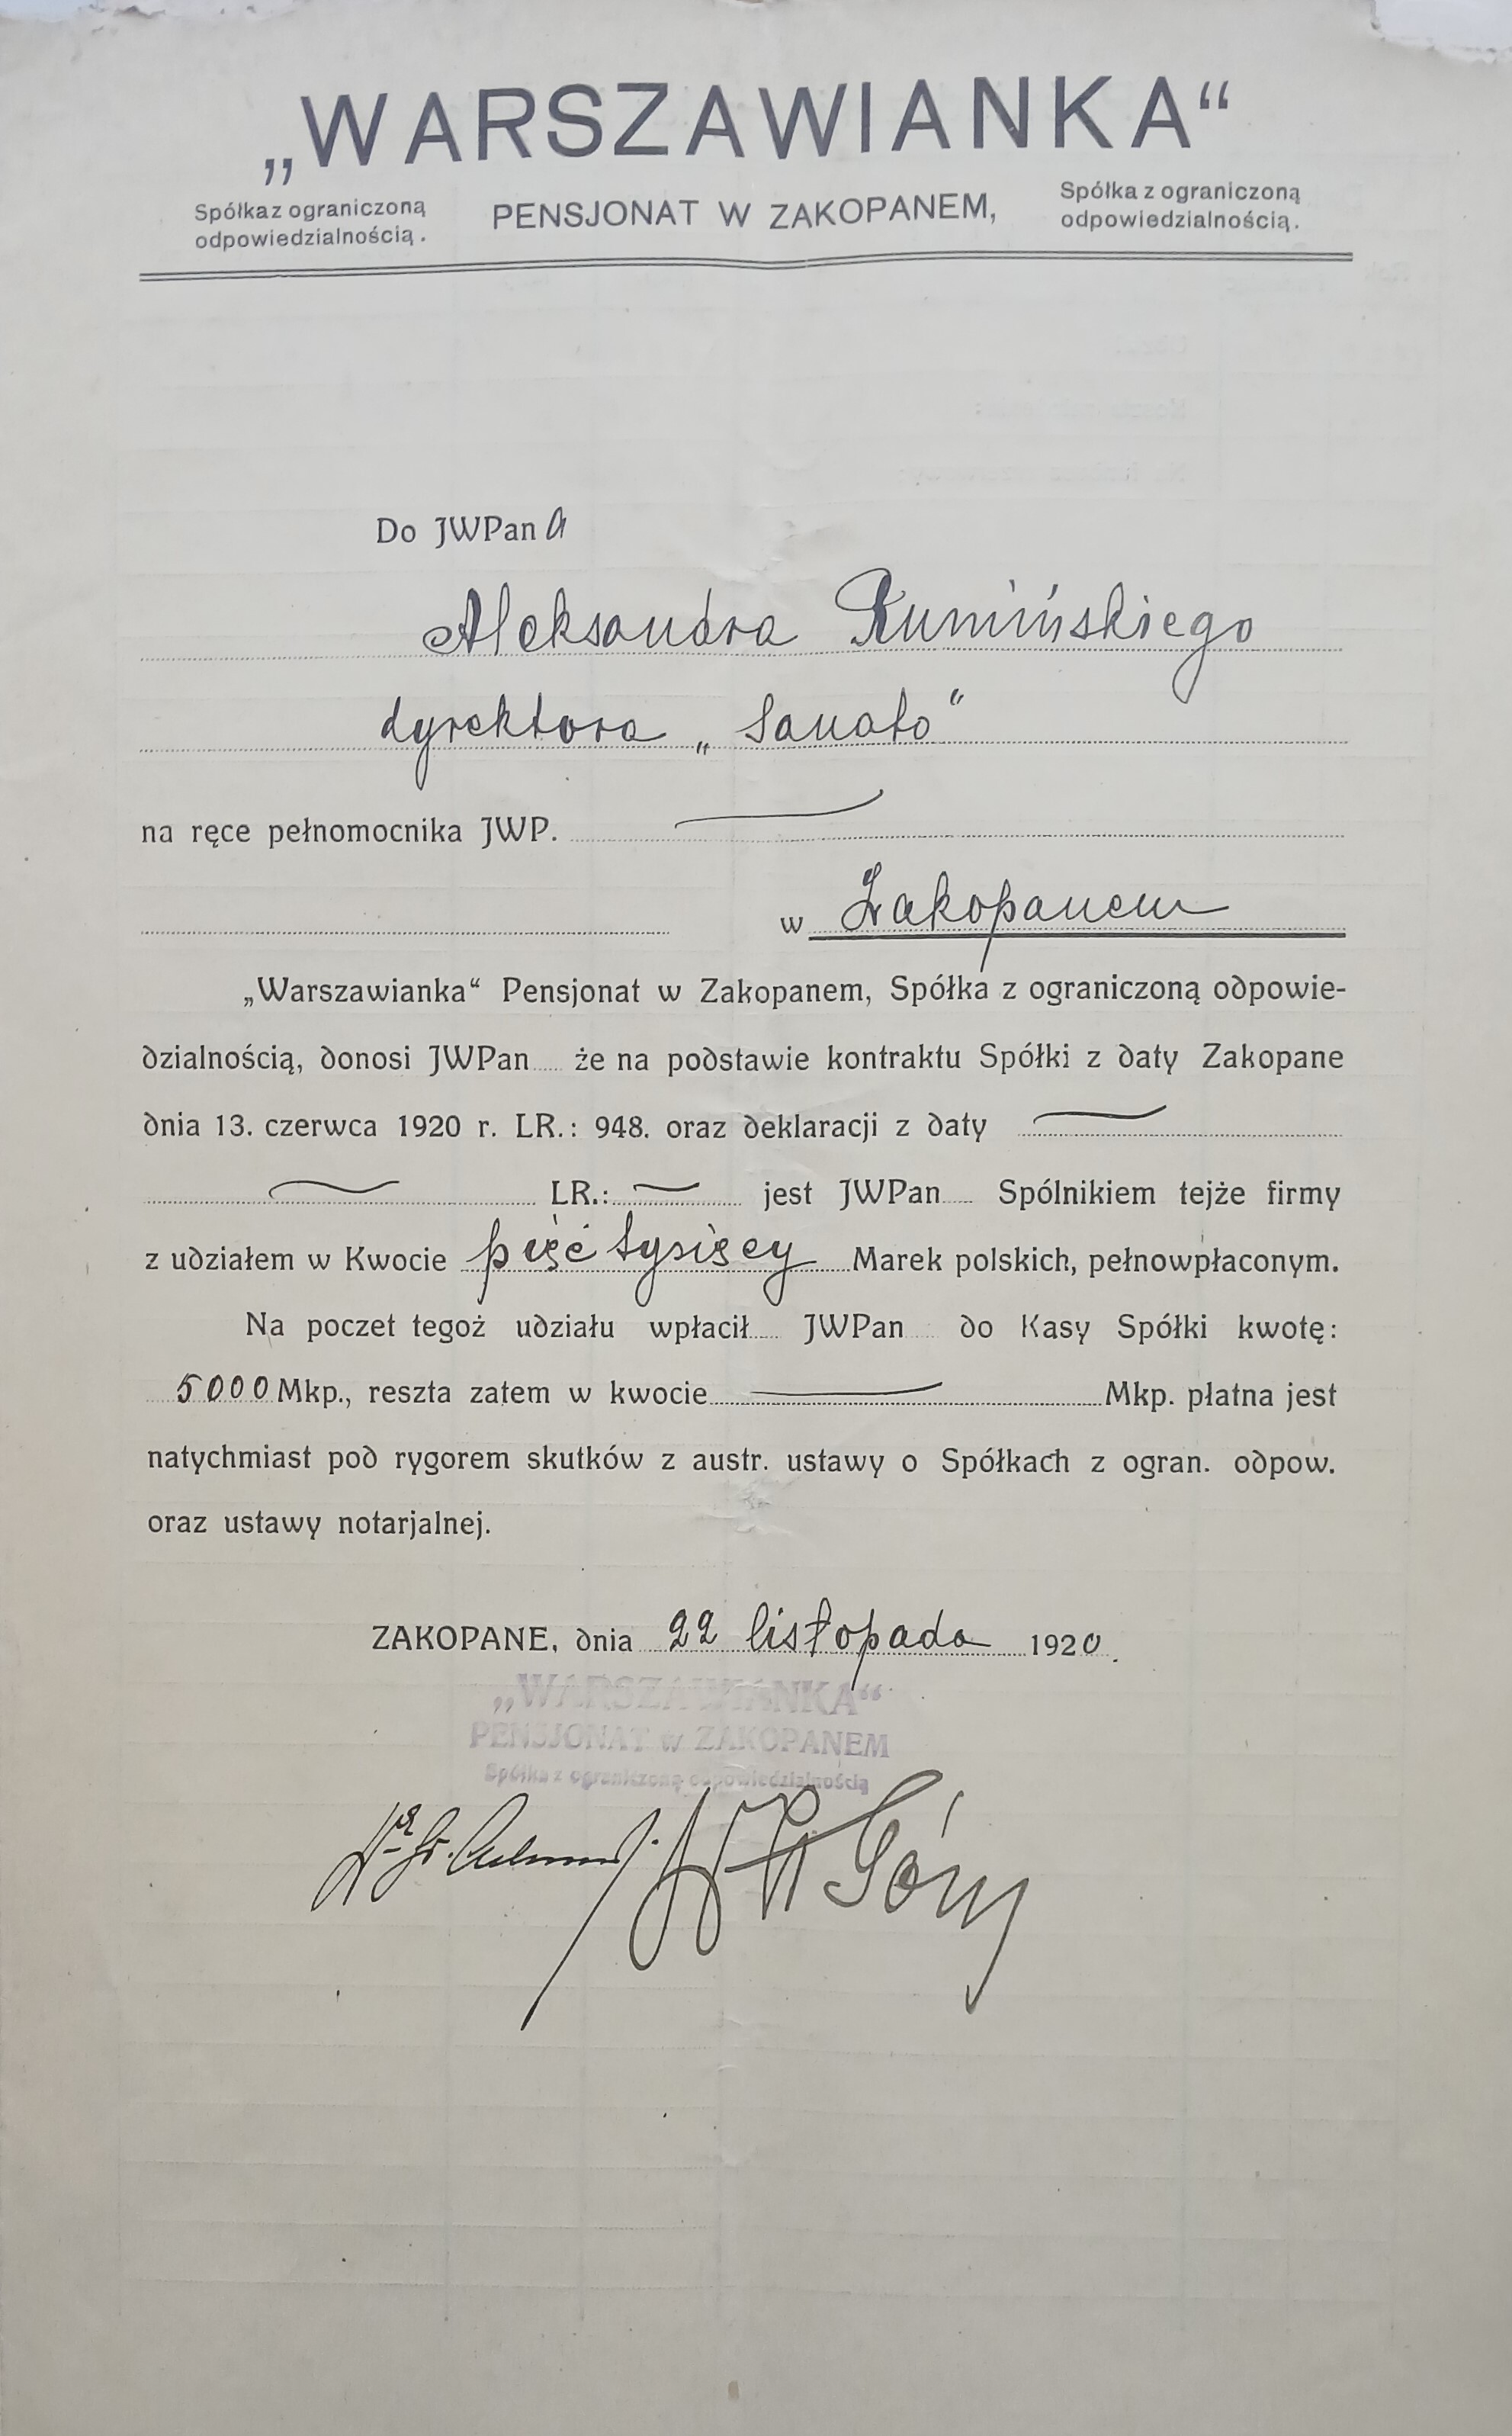 „WARSZAWIANKA“
Spółka z ograniczoną
odpowiedzialnością.
PENSJONAT W ZAKOPANEM,
Spółka z ograniczoną
odpowiedzialnością.
Do JWPana
Aleksandra Rumińskiego
dyrektora „Sanato“
na ręce pełnomocnika JWP.
w Zakopanem
„Warszawianka“ Pensjonat w Zakopanem, Spółka z ograniczoną odpowie-
dzialnością, donosi JWPan że na podstawie kontraktu Spółki z daty Zakopane
dnia 13. czerwca 1920 r. LR.: 948. oraz deklaracji z daty
LR.: jest JWPan Spólnikiem tejże firmy
z udziałem w Kwocie pięć tysięcy Marek polskich, pełnowpłaconym.
Na poczet tegoż udziału wpłacił JWPan do Kasy Spółki kwotę:
5000 Mkp., reszta zatem w kwocie Mkp. płatna jest
natychmiast pod rygorem skutków z austr. ustawy o Spółkach z ogran. odpow.
oraz ustawy notarjalnej.
ZAKOPANE, dnia 22 listopada 1920.
„WARSZAWIANKA“
PENSJONAT w ZAKOPANEM
Spółka z ograniczoną odpowiedzialnością